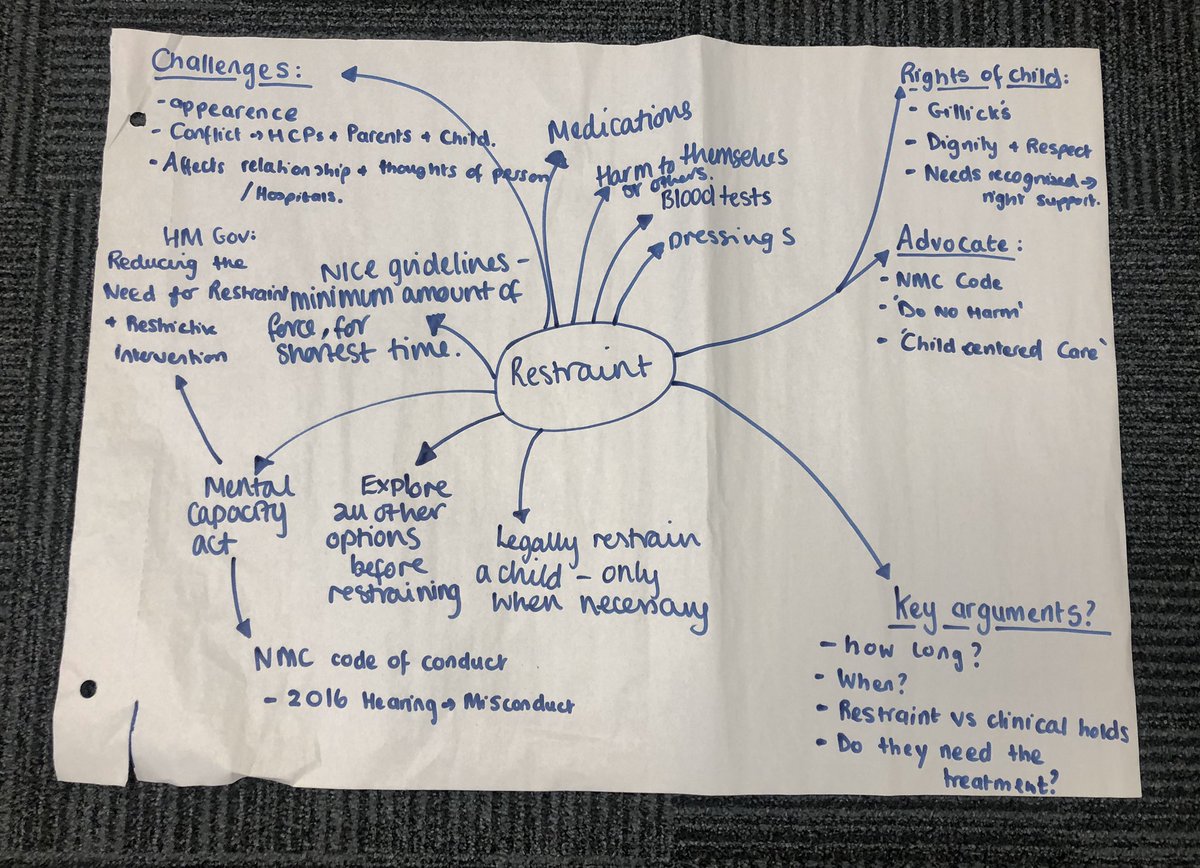 Challenges:
- appearence
- Conflict → HCPs + Parents + Child.
- Affects relationship + thoughts of person
/Hospitals.
HM Gov:
Reducing the
Need for Restraint
+ Restrictive
intervention
NICE guidelines -
minimum amount of
force, for
shortest time.
Medications
Harm to themselves
or others.
Blood tests
Dressings
Rights of child:
- Gillick's
- Dignity + Respect
- Needs recognised →
right support.
Advocate:
- NMC Code
- 'Do No Harm'
- 'Child centered Care'
Restraint
Mental
capacity
act
Explore
all other
options
before
restraining
Legally restrain
a child - only
when necessary
NMC code of conduct
- 2016 Hearing → Misconduct
Key arguments?
- how long?
- When?
- Restraint vs clinical holds
- Do they need the
treatment?